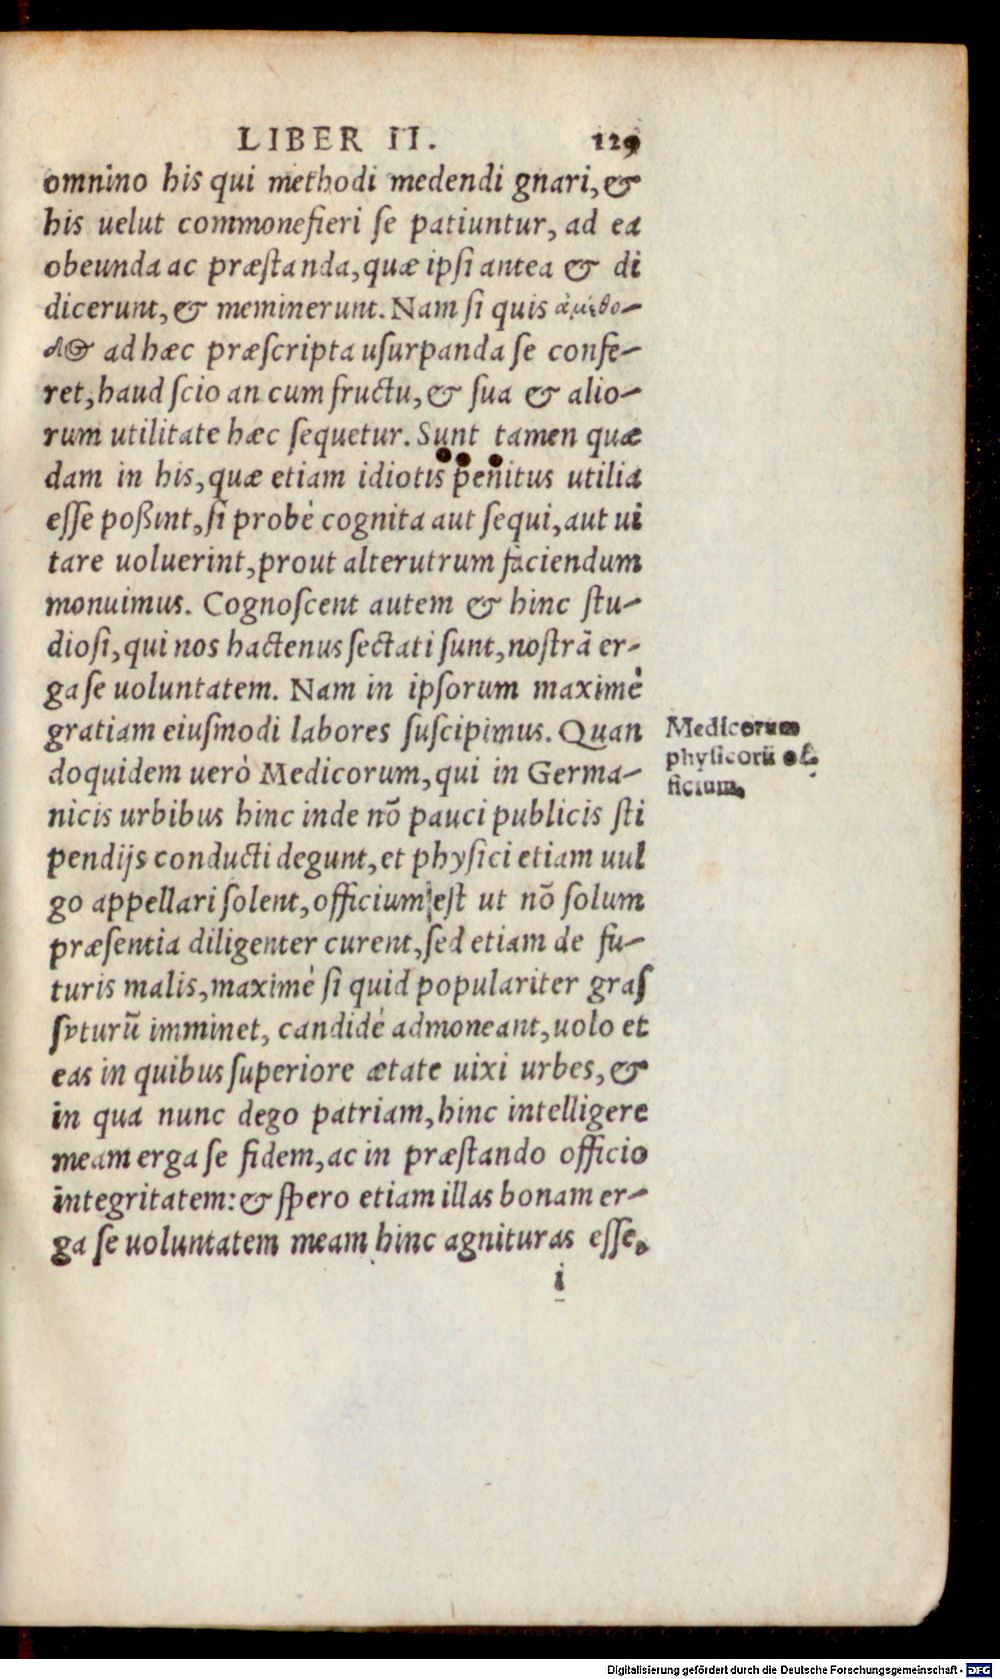 LIBER II. 129
omnino his qui methodi medendi gnari, &
his uelut commonefieri se patiuntur, ad ea
obeunda ac præstanda, quæ ipsi antea & di
dicerunt, & meminerunt. Nam si quis ἀμέθο-
δος ad hæc præscripta usurpanda se confe-
ret, haud scio an cum fructu, & sua & alio-
rum utilitate hæc sequetur. Sunt tamen quæ
dam in his, quæ etiam idiotis penitus utilia
esse poßint, si probè cognita aut sequi, aut ui
tare uoluerint, prout alterutrum faciendum
monuimus. Cognoscent autem & hinc stu-
diosi, qui nos hactenus sectati sunt, nostrã er-
ga se uoluntatem. Nam in ipsorum maximè
gratiam eiusmodi labores suscipimus. Quan
doquidem uerò Medicorum, qui in Germa-
nicis urbibus hinc inde nõ pauci publicis sti
pendijs conducti degunt, et physici etiam uul
go appellari solent, officium est ut nõ solum
præsentia diligenter curent, sed etiam de fu-
turis malis, maximè si quid populariter gras
turũ imminet, candidè admoneant, uolo et
eas in quibus superiore ætate uixi urbes, &
in qua nunc dego patriam, hinc intelligere
meam erga se fidem, ac in præstando officio
integritatem: & spero etiam illas bonam er-
ga se uoluntatem meam hinc agnituras esse.
i
Medicorum
physicorũ of-
ficium.
Digitalisierung gefördert durch die Deutsche Forschungsgemeinschaft - DFG